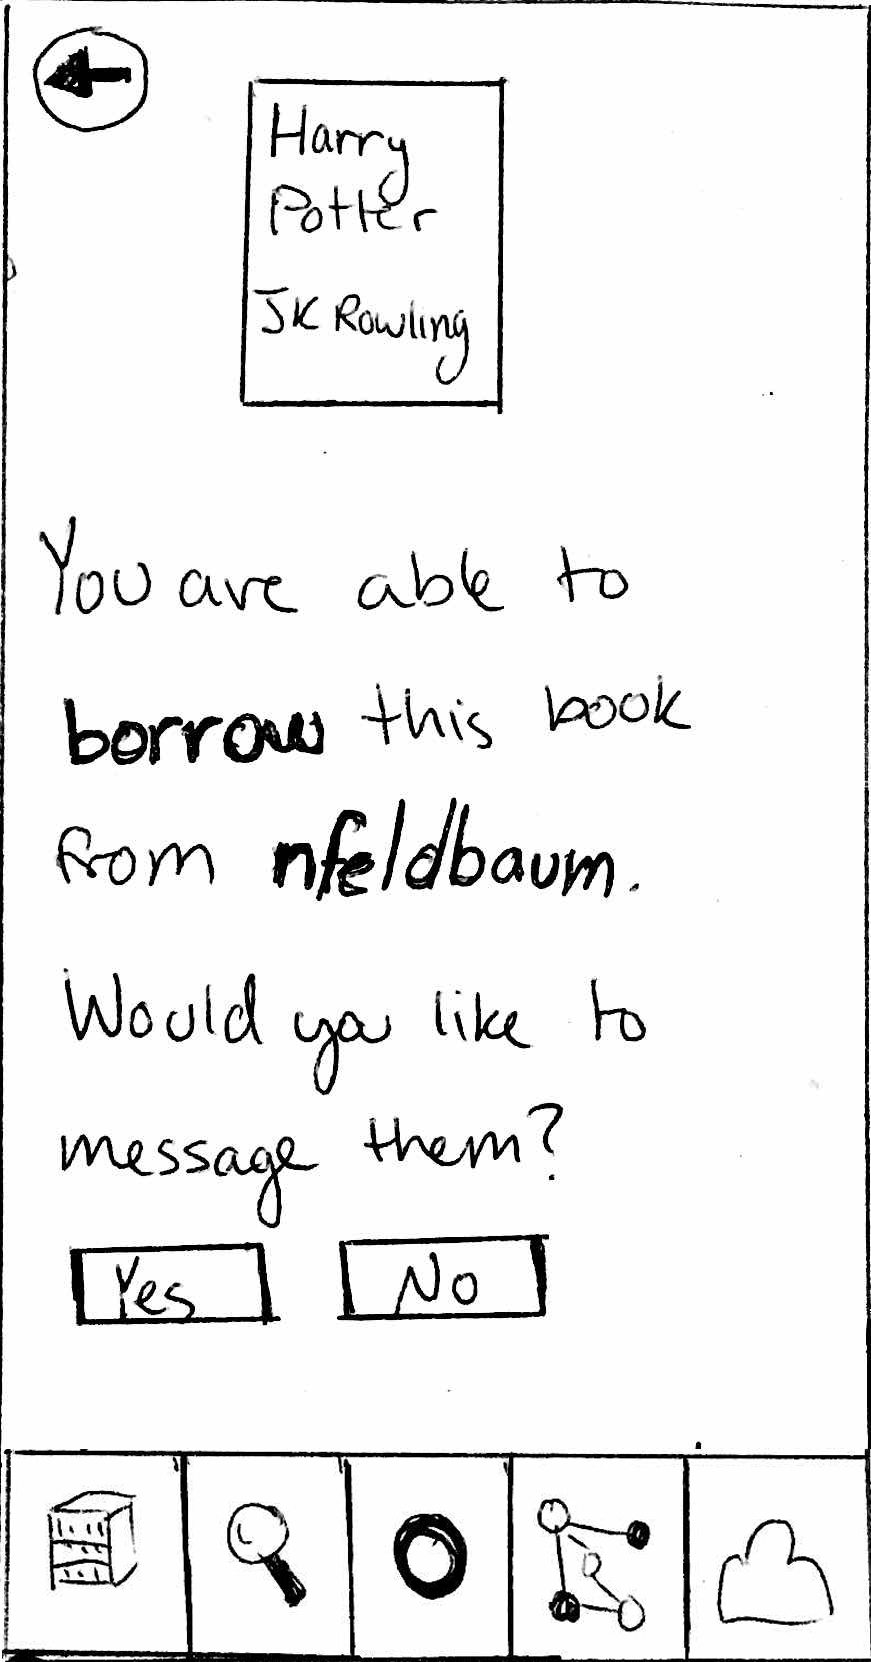 Harry
Potter
JK Rowling
You are able to
borrow this book
from nfeldbaum.
Would you like to
message them?
Yes
No